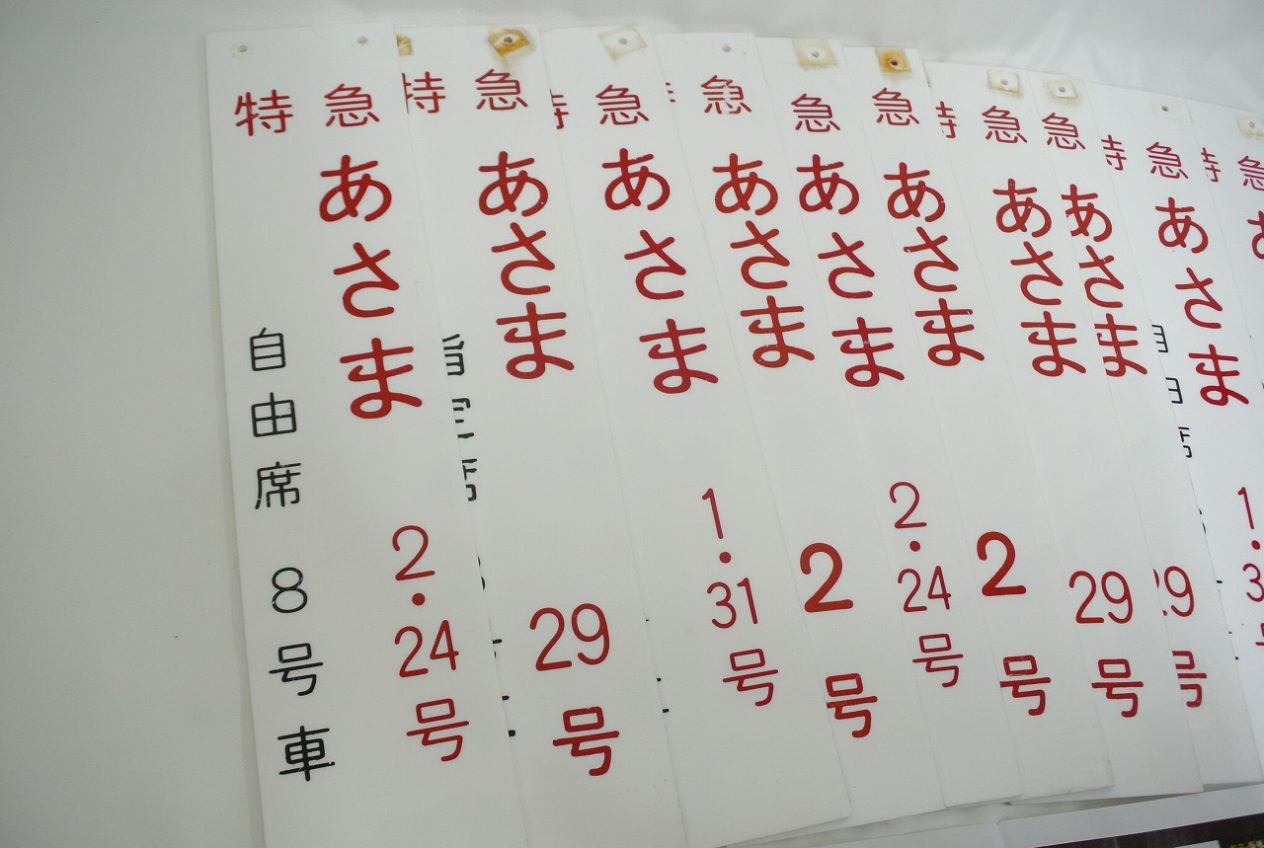 特急
あさま
2・24号
自由席
8号車
特急
あさま
29号
急
あさま
1・31号
急
あさま
2号
急
あさま
2・24号
急
あさま
2号
特急
あさま
29号
急
あさま
29号
特急
あさま
1・3
特急